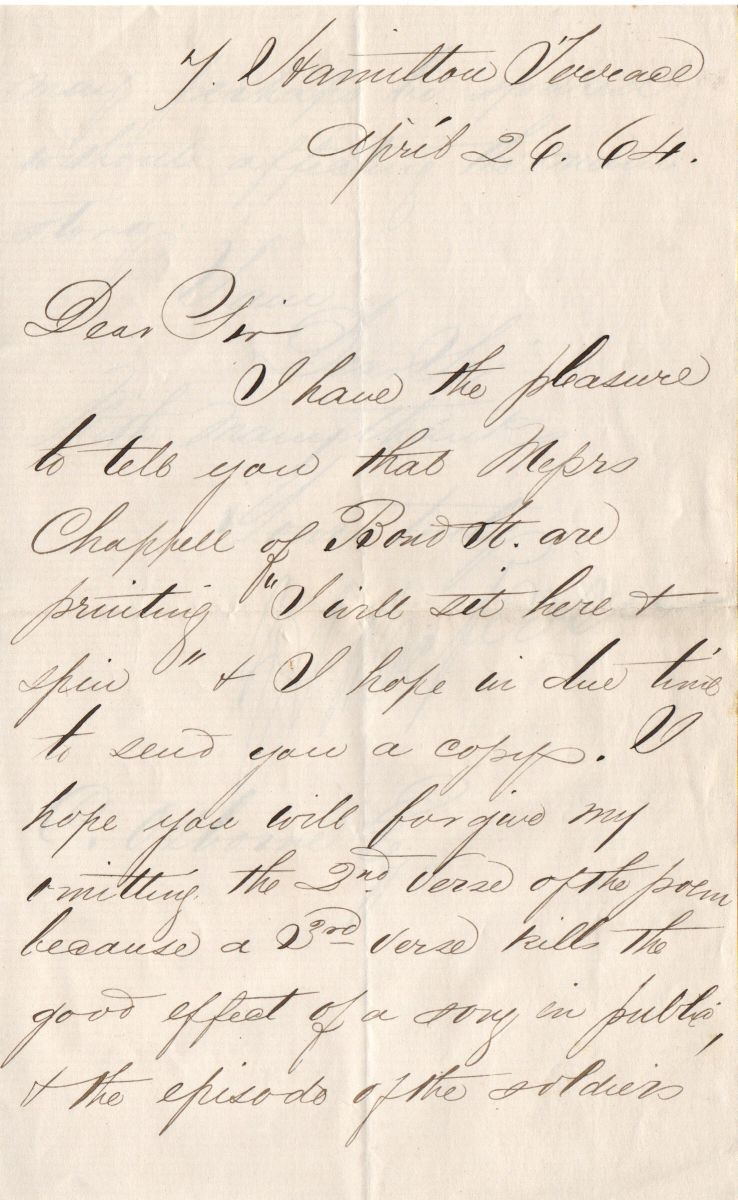 7. Hamilton Terrace
April 26. 64.
Dear Sir
I have the pleasure
to tell you that Messrs
Chappell of Bond St. are
printing "I will sit here &
spin" & I hope in due time
to send you a copy. I
hope you will forgive my
omitting the 2nd verse of the poem
because a 3rd verse kills the
good effect of a song in public,
& the episode of the soldiers